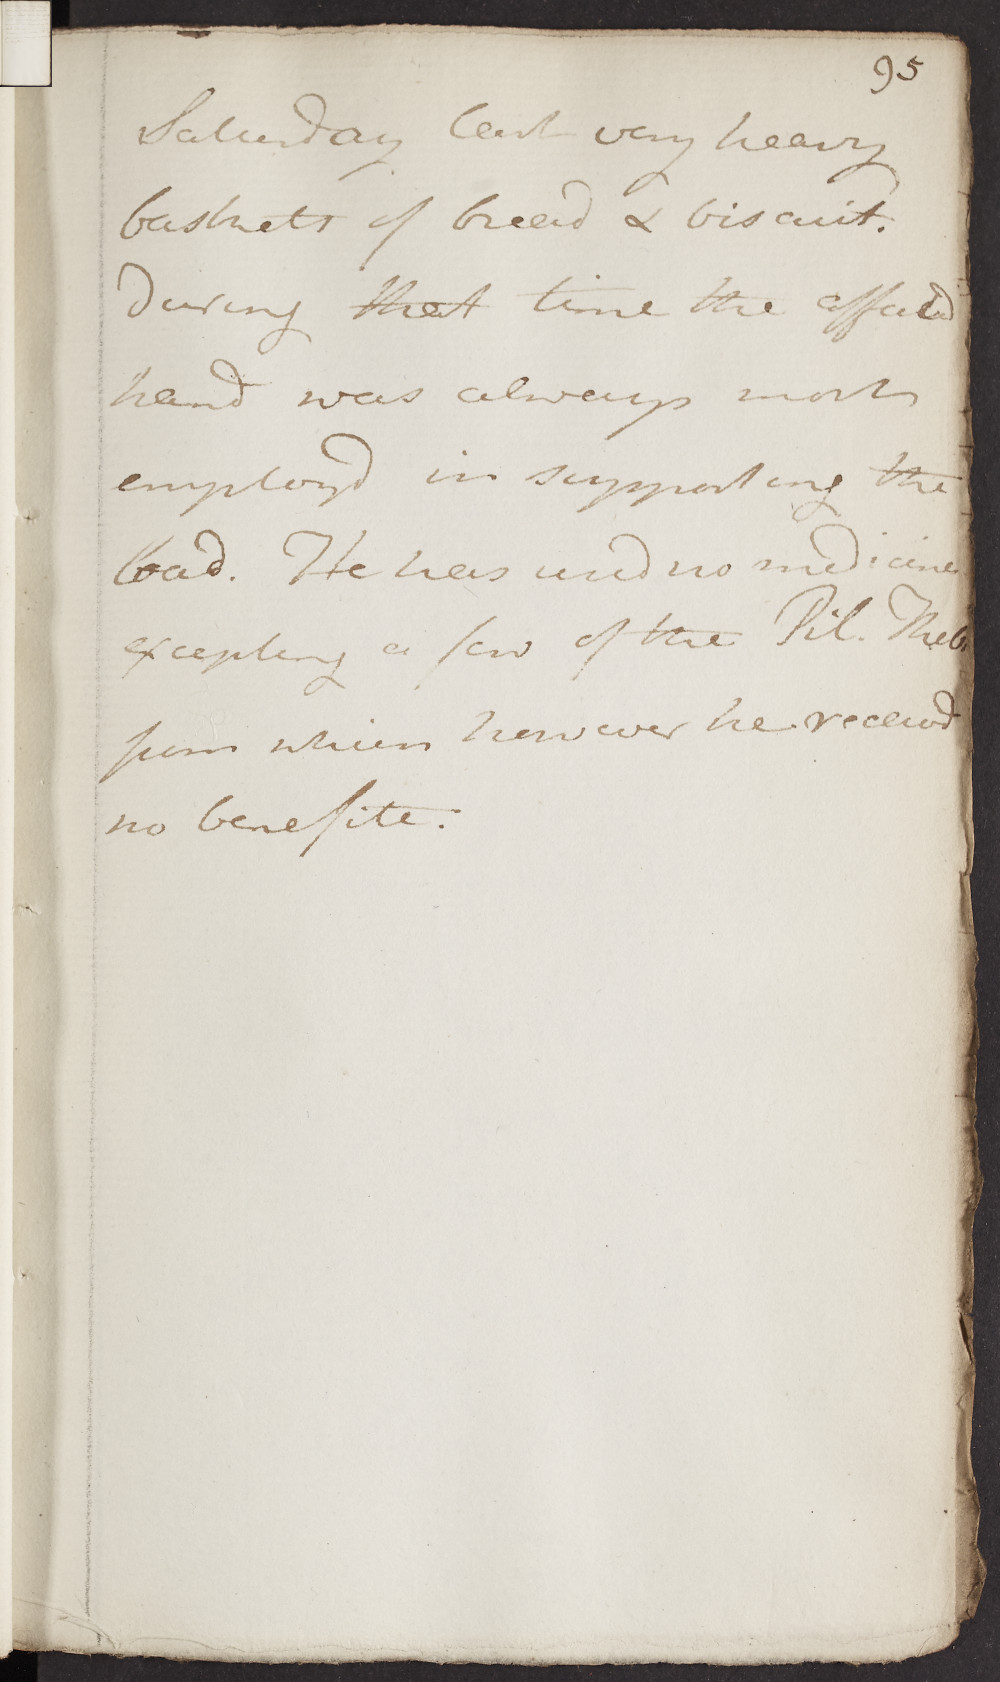 95
Saturday last very heavy
baskets of bread & biscuit.
During that time the affected
hand was always most
employd in supporting the
load. He has used no medicines
excepting a few of the Pil. Theb.
from which however he received
no benefite.